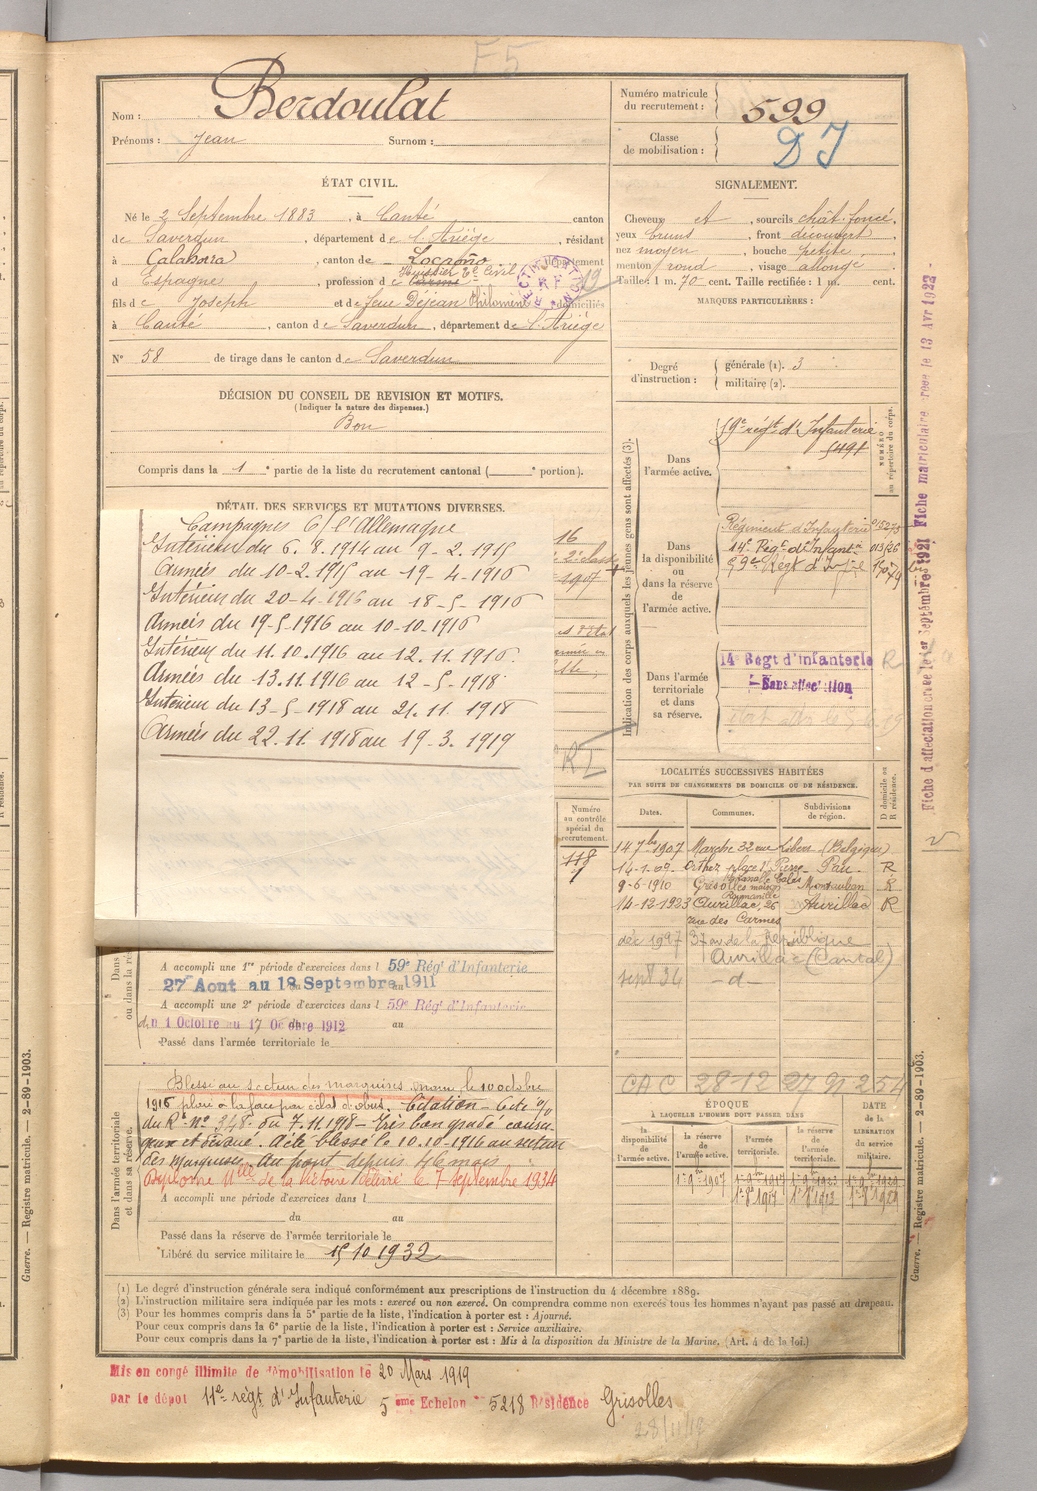 F5
Nom : Berdoulat
Prénoms : Jean Surnom :
Numéro matricule du recrutement : 599
Classe de mobilisation : DJ
ÉTAT CIVIL.
Né le 2 Septembre 1883, à Canté canton
de Saverdun, département de l'Ariége, résidant
à Calahorra, canton de Logroño département
d Espagne, profession de Huissier Tal Civil
fils de Joseph et de feue Dejean Philomène domiciliés
à Canté, canton de Saverdun, département de l'Ariége
RECTIFICATION RF
19
N° 58 de tirage dans le canton de Saverdun
DÉCISION DU CONSEIL DE REVISION ET MOTIFS.
(Indiquer la nature des dispenses.)
Bon
Compris dans la 1e partie de la liste du recrutement cantonal ( e portion).
SIGNALEMENT.
Cheveux et, sourcils chât. foncé,
yeux bruns, front découvert,
nez moyen, bouche petite,
menton rond, visage allongé.
Taille : 1 m. 70 cent. Taille rectifiée : 1 m. cent.
MARQUES PARTICULIÈRES :
Degré d'instruction : générale (1). 3
militaire (2).
DÉTAIL DES SERVICES ET MUTATIONS DIVERSES.
Campagnes C/ l'Allemagne
Intérieur du 6.8.1914 au 9-2.1915
Armées du 10-2.1915 au 19-4-1916
Intérieur du 20-4.1916 au 18-5-1916
Armées du 19-5-1916 au 10-10-1916
Intérieur du 11.10.1916 au 12.11.1916.
Armées du 13.11.1916 au 12-5-1918.
Intérieur du 13-5-1918 au 21.11.1918
Armées du 22.11.1918 au 19-3.1919
16
1907
Numéro au contrôle spécial du recrutement.
118
Indication des corps auxquels les jeunes gens sont affectés (3).
NUMÉRO au répertoire du corps.
Dans l'armée active.
59e régt d'Infanterie
5491
Dans la disponibilité ou dans la réserve de l'armée active.
Régiment d'Infanterie 015273
14e Régt d'Infantie 013/26
59e Régt d'Infie
Dans l'armée territoriale et dans sa réserve.
14e Régt d'infanterie R
Sans affectation
LOCALITÉS SUCCESSIVES HABITÉES
PAR SUITE DE CHANGEMENTS DE DOMICILE OU DE RÉSIDENCE.
Dates. Communes. Subdivisions de région. D domicile ou R résidence.
14 7bre 1907 Marche 32 rue Libert (Belgique)
14-1-09 Orthez place St Pierre Pau. R
9-6-1910 Grisolles maison Montauban R
14-12-1923 Aurillac, 26 rue des Carmes Aurillac R
déc 1927 37 av de la République
Aurillac (Cantal)
sept 34 -d-
CAC 28-12 27 91 254
A accompli une 1re période d'exercices dans l 59e Rég' d'Infanterie
27 Aout au 18 Septembre 1911
A accompli une 2e période d'exercices dans l 59e Rég' d'Infanterie
du 1 Octobre au 17 Octobre 1912 au
Passé dans l'armée territoriale le
Dans l'armée territoriale et dans sa réserve.
Blessé au secteur des marquises, marne, le 10 octobre
1916 plaie à la face par éclat d'obus. Citation - Cité %
du Rt no 348. du 7.11.1918 - très bon gradé coura-
geux et dévoué. A été blessé le 10.10-1916 au secteur
des marquises. Au front depuis 46 mois.
Diplome Mlle de la Victoire délivré le 7 septembre 1934
A accompli une période d'exercices dans l
du au
Passé dans la réserve de l'armée territoriale le
Libéré du service militaire le 15 10 1932
ÉPOQUE
À LAQUELLE L'HOMME DOIT PASSER DANS
la disponibilité de l'armée active. la réserve de l'armée active. l'armée territoriale. la réserve de l'armée territoriale. DATE de la LIBÉRATION du service militaire.
1er 9bre 1907 1er 9bre 1917 1er 9bre 1923 1er 9bre 1929
(1) Le degré d'instruction générale sera indiqué conformément aux prescriptions de l'instruction du 4 décembre 1889.
(2) L'instruction militaire sera indiquée par les mots : exercé ou non exercé. On comprendra comme non exercés tous les hommes n'ayant pas passé au drapeau.
(3) Pour les hommes compris dans la 5e partie de la liste, l'indication à porter est : Ajourné.
Pour ceux compris dans la 6e partie de la liste, l'indication à porter est : Service auxiliaire.
Pour ceux compris dans la 7e partie de la liste, l'indication à porter est : Mis à la disposition du Ministre de la Marine. (Art. 4 de la loi.)
Mis en congé illimité de démobilisation le 20 Mars 1919
par le dépôt 11e régt d'Infanterie 5eme Echelon 5218 Résidence Grisolles
28/11/18
Guerre. — Registre matricule. — 2-89-1903.
Guerre. — Registre matricule. — 2-89-1903.
Fiche d'affectation créée le 1er Septembre 1921 Fiche matriculaire créée le 13 Avr 1923